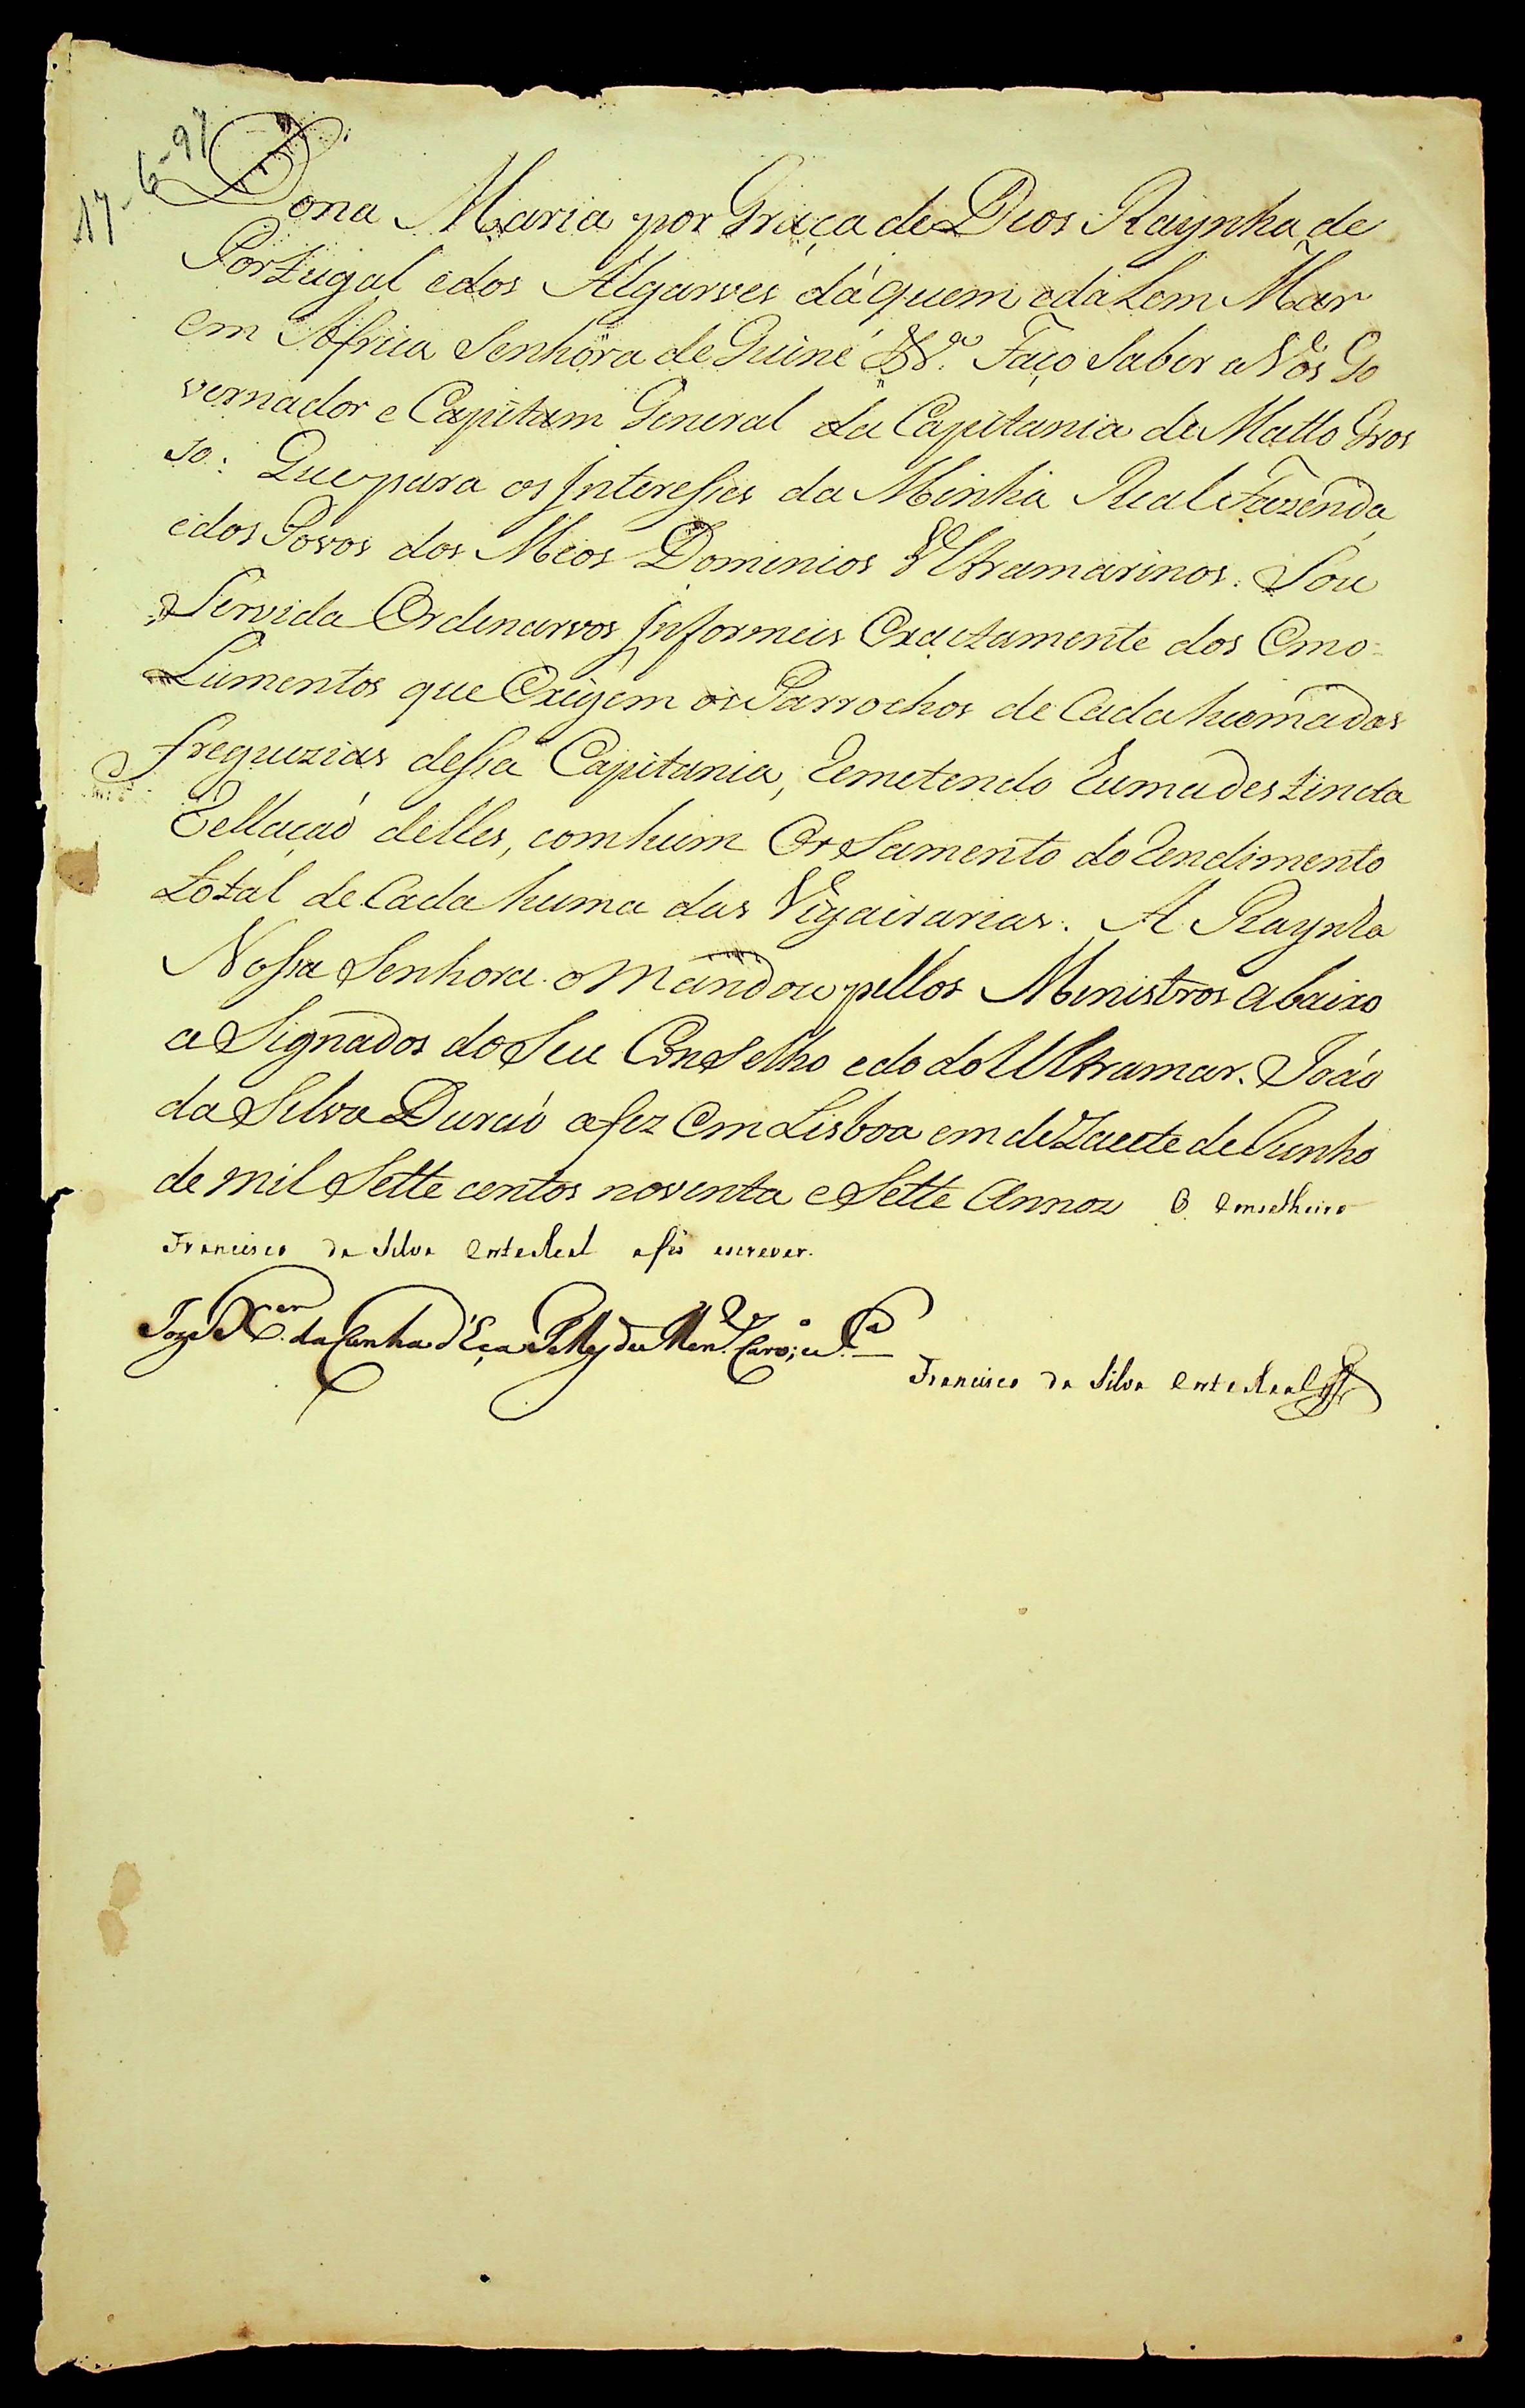 17-6-97
Dona Maria por Graça de Deos Raynha de
Portugal e dos Algarves dáquem e dalem Mar
em Africa Senhora de Guiné &.ª Faço Saber a Vós Go
vernador e Capitam General da Capitania de Matto Gros
so: Que para os Interesses da Minha Real Fazenda,
e dos Povos dos Meos Dominios Ultramarinos. Sou
Servida Ordenarvos Informeis Exactamente dos Emo-
Lumentos que Exigem os Parrochos de Cada huma das
freguezias dessa Capitania, Remetendo huma destinda
Rellação delles, com hum Orsamento do Rendimento
total de Cada huma das Vigairarias. A Raynha
Nossa Senhora o Mandou pellos Ministros abaixo
aSignados do Seu ConSelho e do do Ultramar. João
da Silva Duraó a fez Em Lisboa em deZacete de Junho
de mil Sette centos noventa e Sette Annoz O Conselheiro
Francisco da Silva CorteReal a fis escrever.
Joze X.er da Cunha d'Eça Telles de Men.es Carv.o e S.a
Francisco da Silva CorteReal